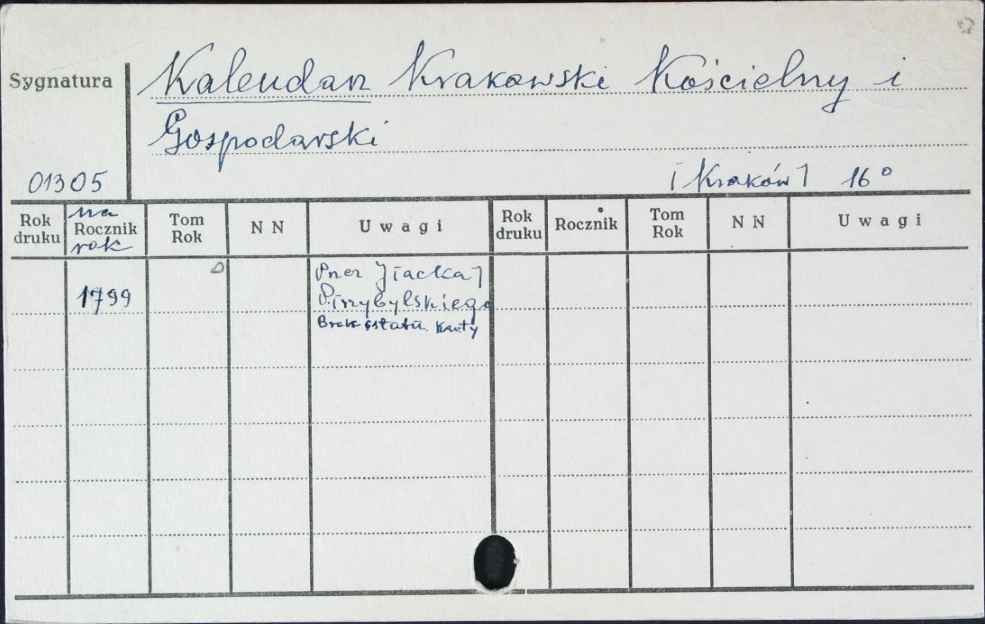 Sygnatura
Kalendarz Krakowski Kościelny i
Gospodarski
01305
[Kraków] 16°
Rok druku
na Rocznik rok
Tom Rok
N N
Uwagi
Rok druku
Rocznik
Tom Rok
N N
Uwagi
1799
Przez J[acka]
Przybylskiego
Brak ostatn. karty